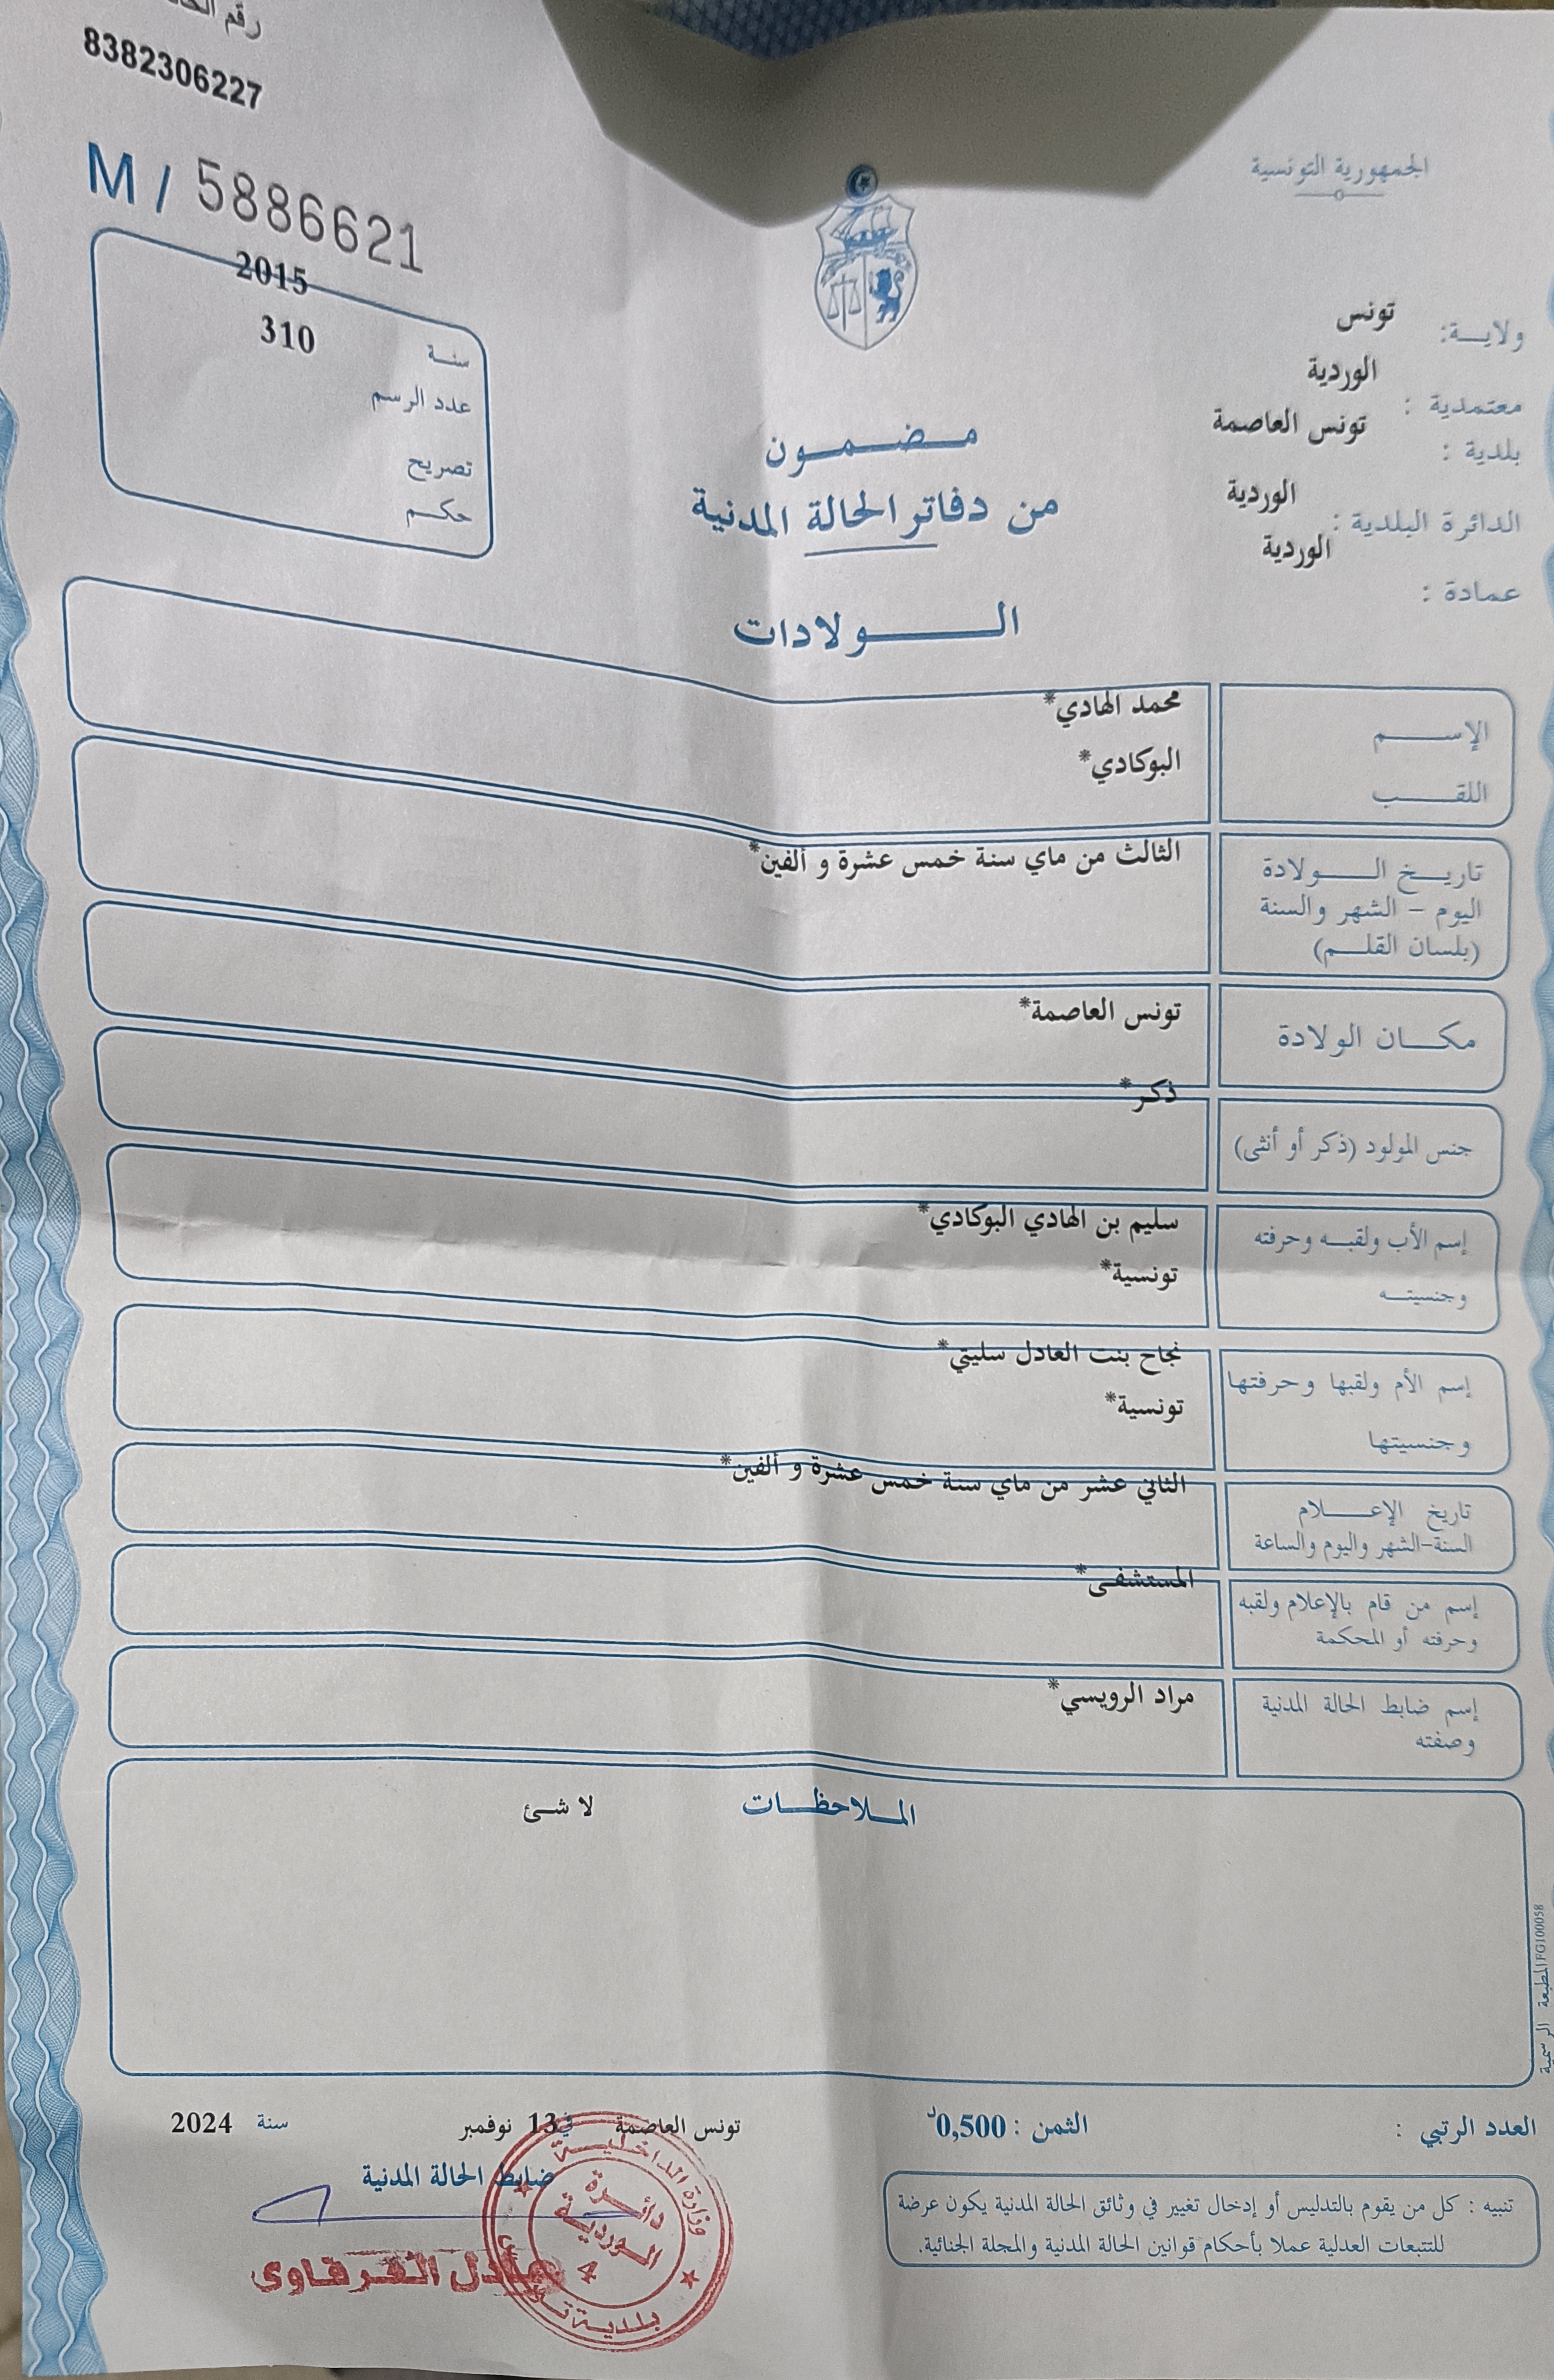 رقم
8382306227
M / 5886621
الجمهورية التونسية
ولايـــة: تونس
معتمدية : الوردية
بلدية : تونس العاصمة
الدائرة البلدية : الوردية
عمادة : الوردية
2015
سنـة
310
عدد الرسم
تصريح
حكـم
مـضـمـون
من دفاتر الحالة المدنية
الـــولادات
الإســـم محمد الهادي*
اللقـــب البوكادي*
تاريـخ الـــولادة الثالث من ماي سنة خمس عشرة و ألفين*
اليوم - الشهر والسنة
(بلسان القلـم)
مكـــان الولادة تونس العاصمة*
جنس المولود (ذكر أو أنثى) ذكر*
إسم الأب ولقبـه وحرفته سليم بن الهادي البوكادي*
وجنسيتـه تونسية*
إسم الأم ولقبها وحرفتها نجاح بنت العادل سليتي*
وجنسيتها تونسية*
تاريخ الإعـــلام الثاني عشر من ماي سنة خمس عشرة و ألفين*
السنة-الشهر واليوم والساعة
إسم من قام بالإعلام ولقبه المستشفى*
وحرفته أو المحكمة
إسم ضابط الحالة المدنية مراد الرويسي*
وصفته
الملاحظـــات لا شئ
المطبعة الرسمية FG100058
العدد الرتبي :
الثمن : 0,500د
تونس العاصمة في 13 نوفمبر سنة 2024
ضابط الحالة المدنية
عادل الفرقاوي
وزارة الداخليـــة
دائـرة
الـورديـة
4
بلديـة تونس
تنبيه : كل من يقوم بالتدليس أو إدخال تغيير في وثائق الحالة المدنية يكون عرضة
للتتبعات العدلية عملا بأحكام قوانين الحالة المدنية والمجلة الجنائية.